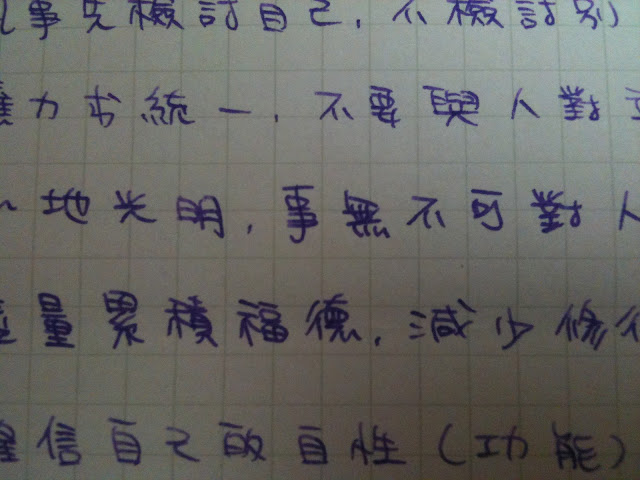 凡事先檢討自己，不檢討別
應力求統一，不要與人對立
心地光明，事無不可對人
盡量累積福德，減少修行
信自己啟自性（功能）